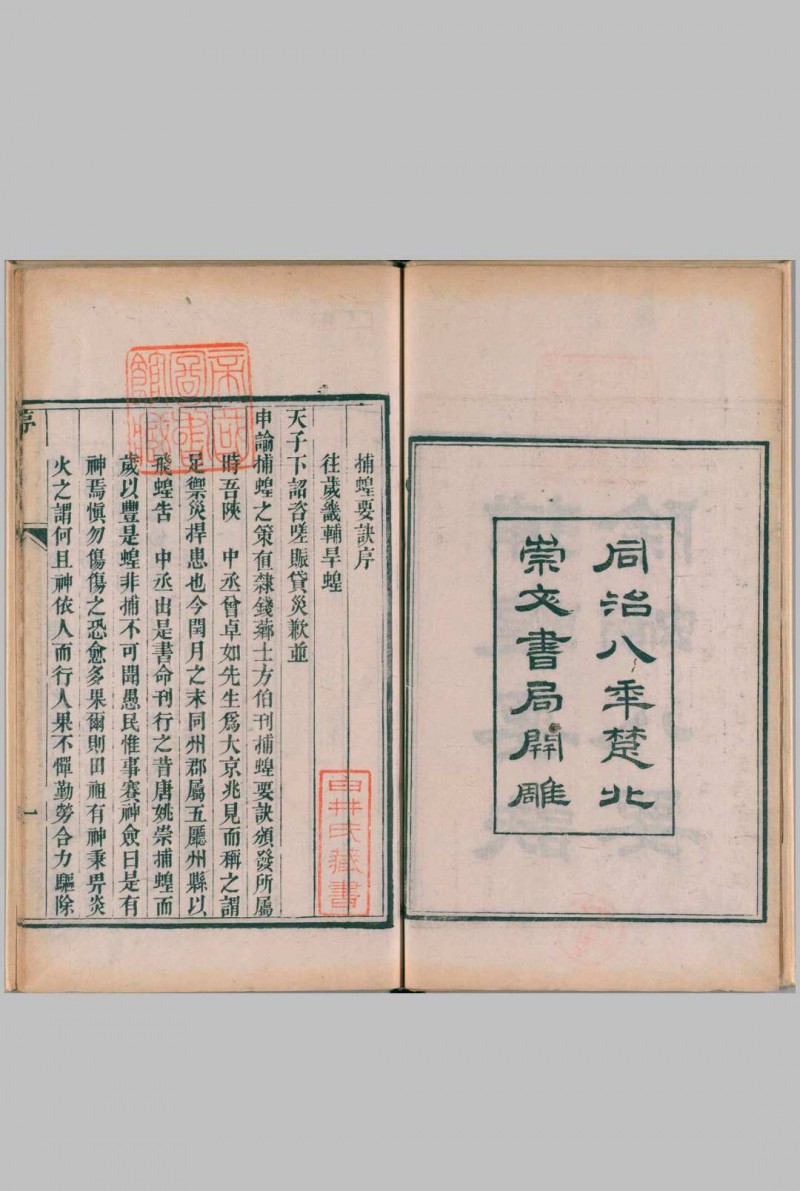 同治八年楚北
崇文書局開雕
捕蝗要訣序
往歲畿輔旱蝗
天子下詔咨嗟賑貸災歉並
申諭捕蝗之策直隸錢薌士方伯刊捕蝗要訣頒發所屬
時吾陝　中丞曾卓如先生爲大京兆見而稱之謂
足禦災捍患也今閏月之末同州郡屬五廳州縣以
飛蝗告　中丞出是書命刊行之昔唐姚崇捕蝗而
歲以豐是蝗非捕不可聞愚民惟事賽神僉曰是有
神焉愼勿傷傷之恐愈多果爾則田祖有神秉畀炎
火之謂何且神依人而行人果不憚勤勞合力驅除
序
一
帝國圖書館藏
白井氏藏書